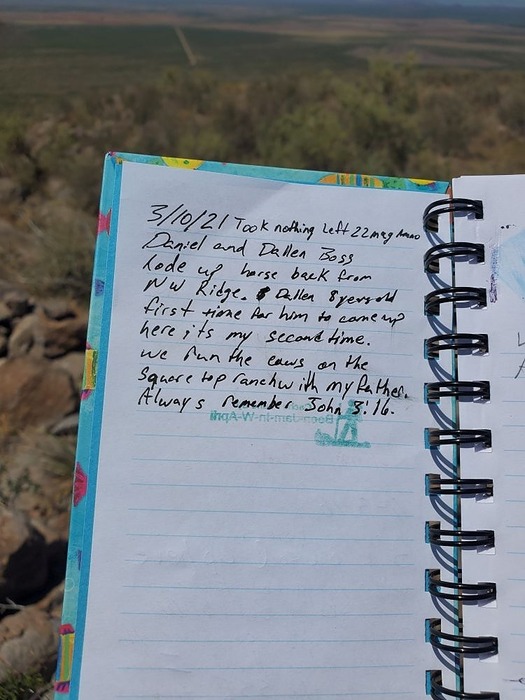 3/10/21 Took nothing Left 22 mag Ammo
Daniel and Dallen Boss
Rode up horse back from
NW Ridge. Dallen 8 years old
first time for him to come up
here; its my second time.
we run the cows on the
Square top ranch with my father.
Always remember John 3:16.